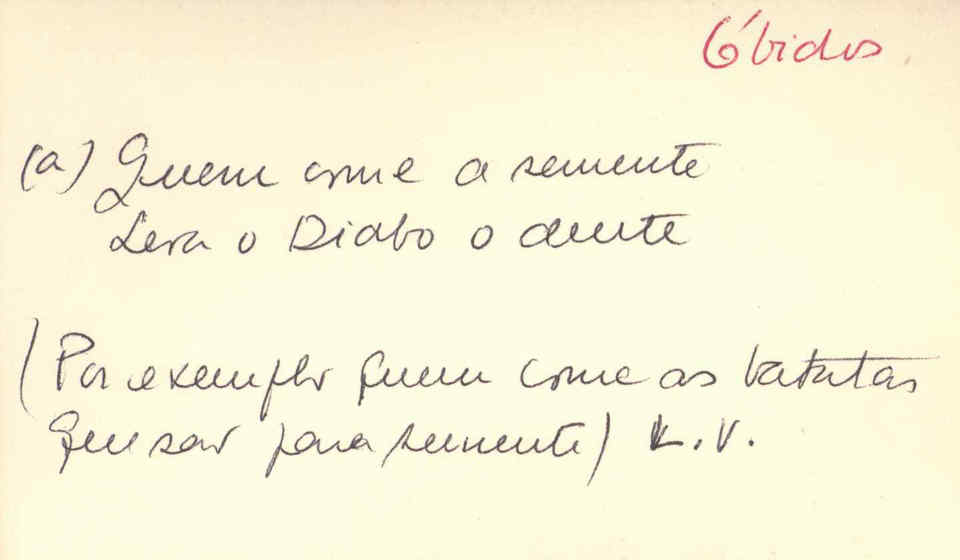 Óbidos
(a) Quem come a semente
Leva o Diabo o dente
(Por exemplo quem come as batatas
que são para semente) L.V.